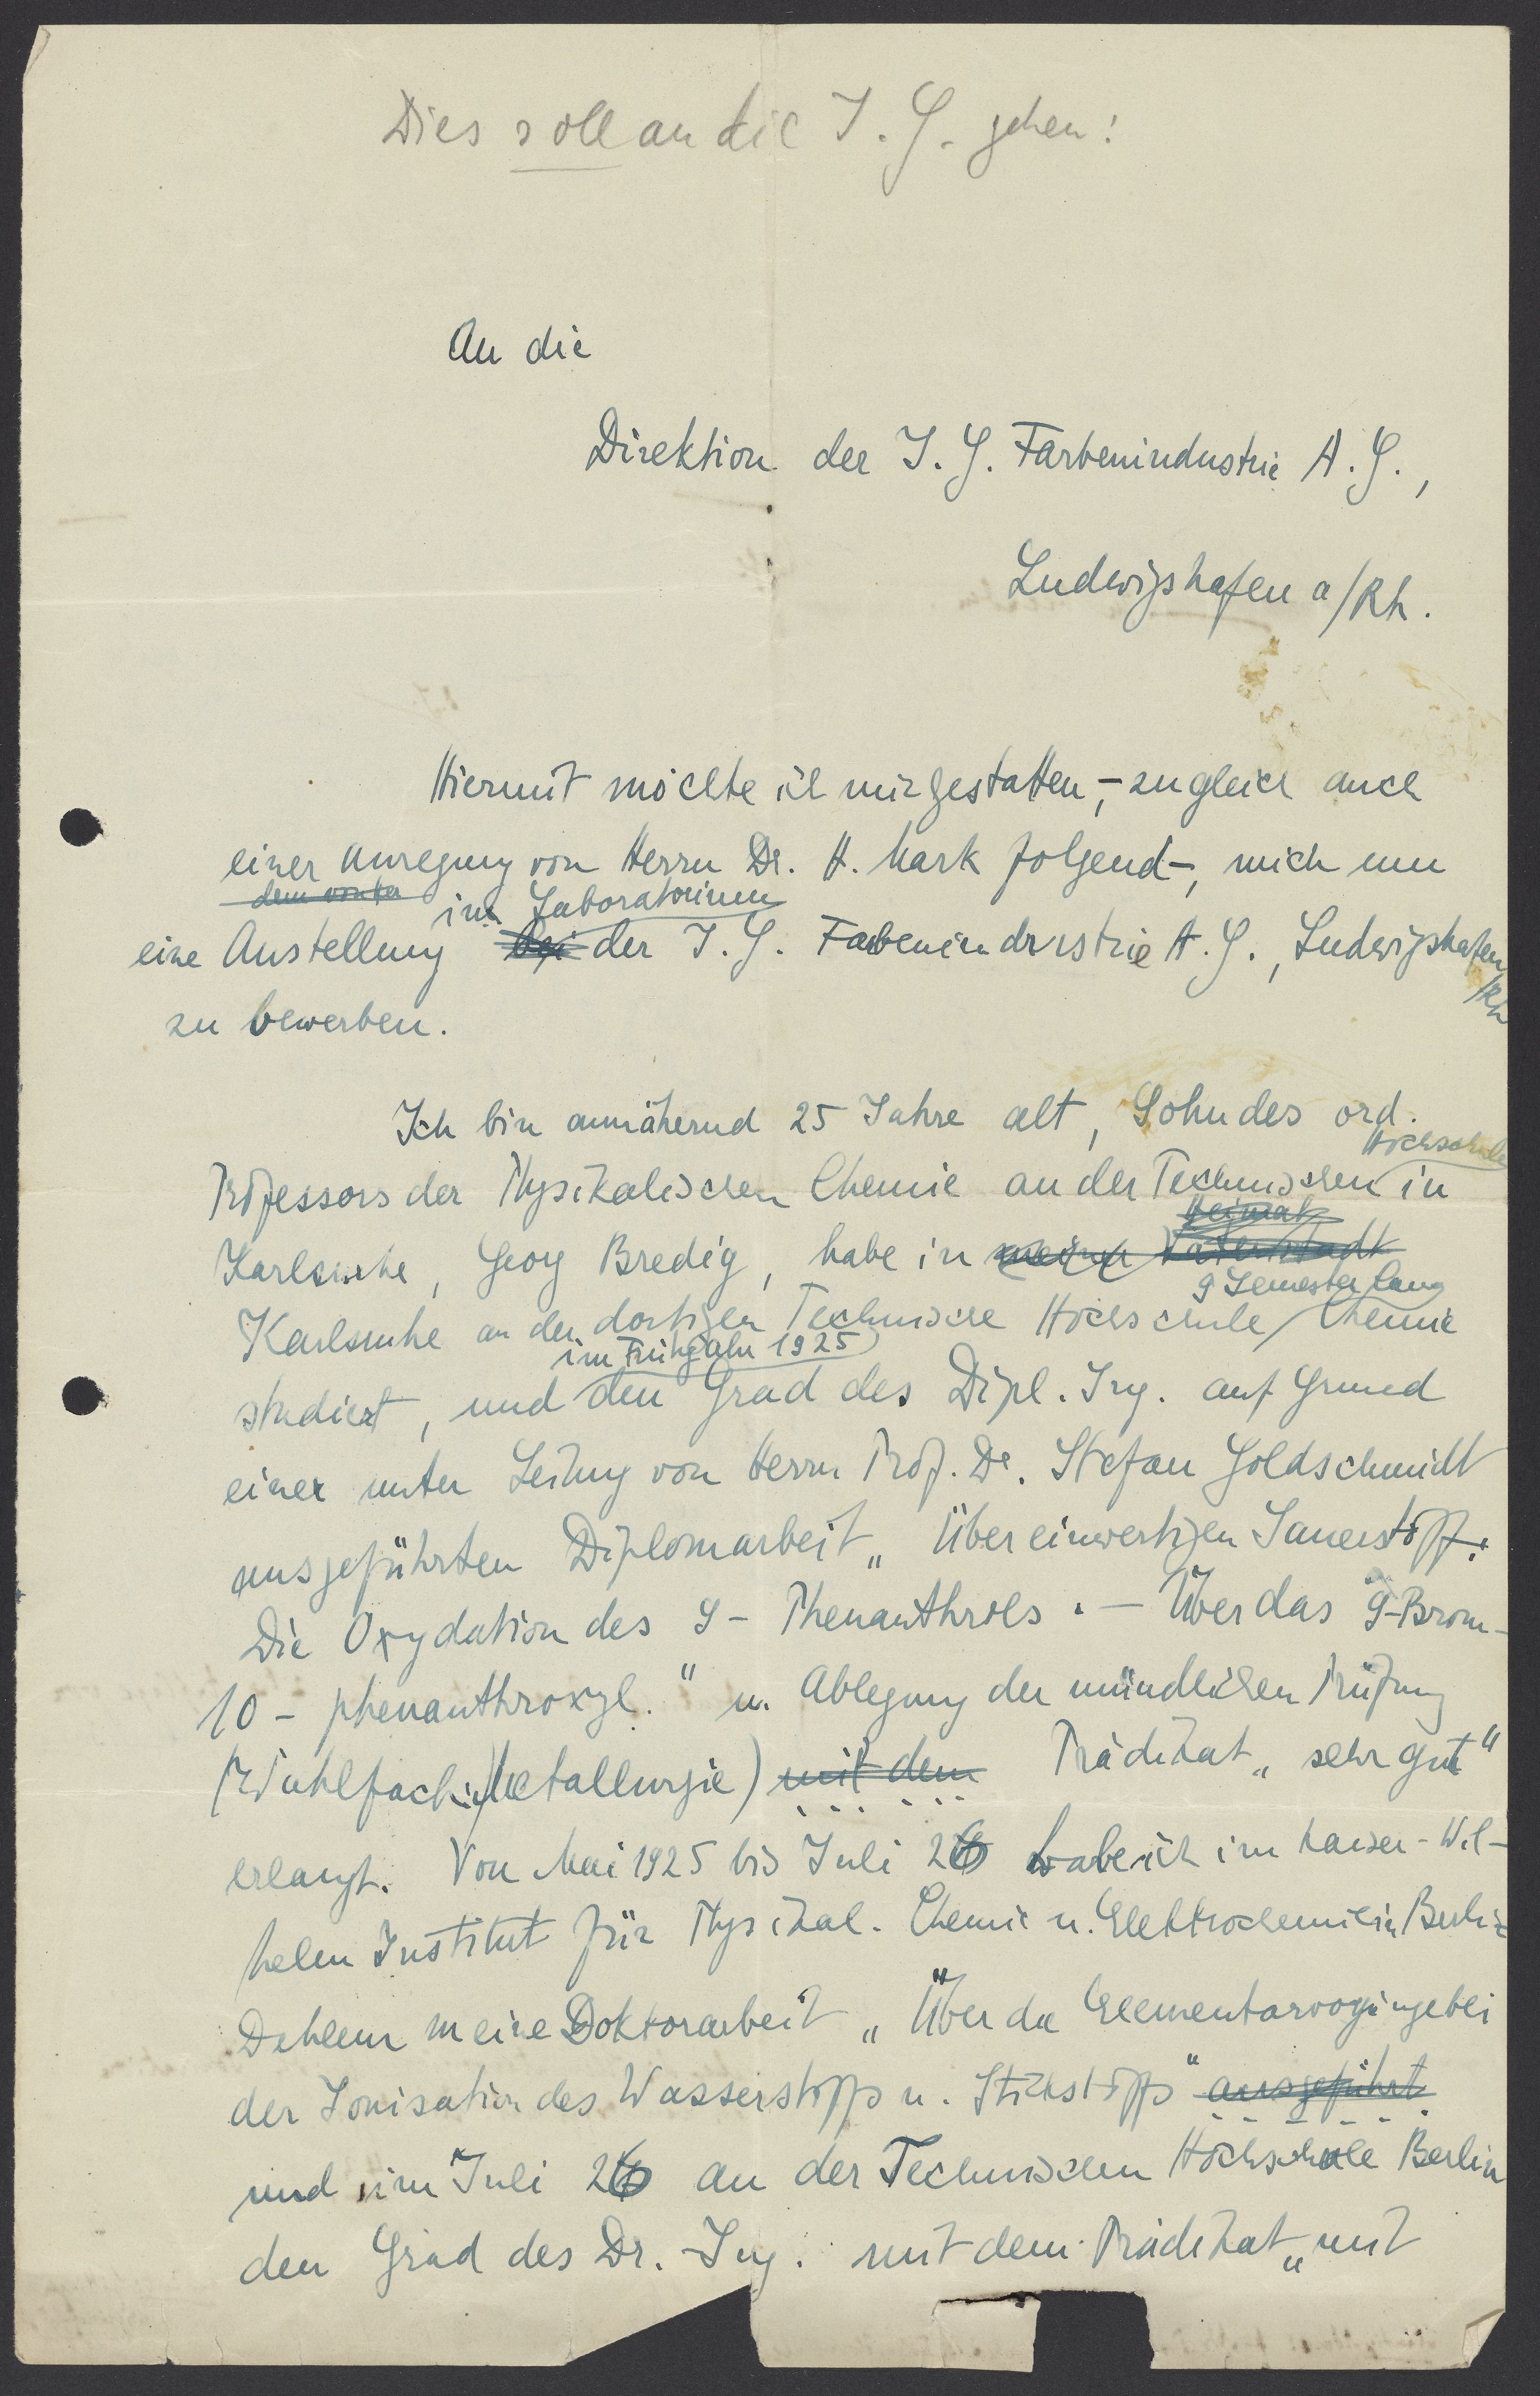 Dies soll an die I. G. gehen!
An die
Direktion der I. G. Farbenindustrie A. G.,
Ludwigshafen a/Rh.
Hiermit möchte ich mir gestatten, – zugleich auch
einer Anregung von Herrn Dr. H. Mark folgend –, mich um
im Laboratorium
eine Anstellung bei der I. G. Farbenindustrie A. G., Ludwigshafen
/Rh
zu bewerben.
Ich bin annähernd 25 Jahre alt, Sohn des ord.
Hochschule
Professors der Physikalischen Chemie an der Technischen in
Heimat
Karlsruhe, Georg Bredig, habe in meiner Vaterstadt
9 Semester lang
Karlsruhe an der dortigen Technische Hochschule Chemie
im Frühjahr 1925
studiert, und den Grad des Dipl. Ing. auf Grund
einer unter Leitung von Herrn Prof. Dr. Stefan Goldschmidt
ausgeführten Diplomarbeit „Über einwertigen Sauerstoff:
Die Oxydation des 9 - Phenanthrols. — Über das 9-Brom-
10 - phenanthroxyl." u. Ablegung der mündlichen Prüfung
(Wahlfach: Metallurgie) mit dem Prädikat „sehr gut"
erlangt. Von Mai 1925 bis Juli 26 habe ich im Kaiser-Wil-
helm Institut für Physikal. Chemie u. Elektrochemie in Berlin
Dahlem meine Doktorarbeit „Über die Elementarvorgänge bei
der Ionisation des Wasserstoffs u. Stickstoffs" ausgeführt
und im Juli 26 an der Technischen Hochschule Berlin
den Grad des Dr. - Ing. mit dem Prädikat „mit